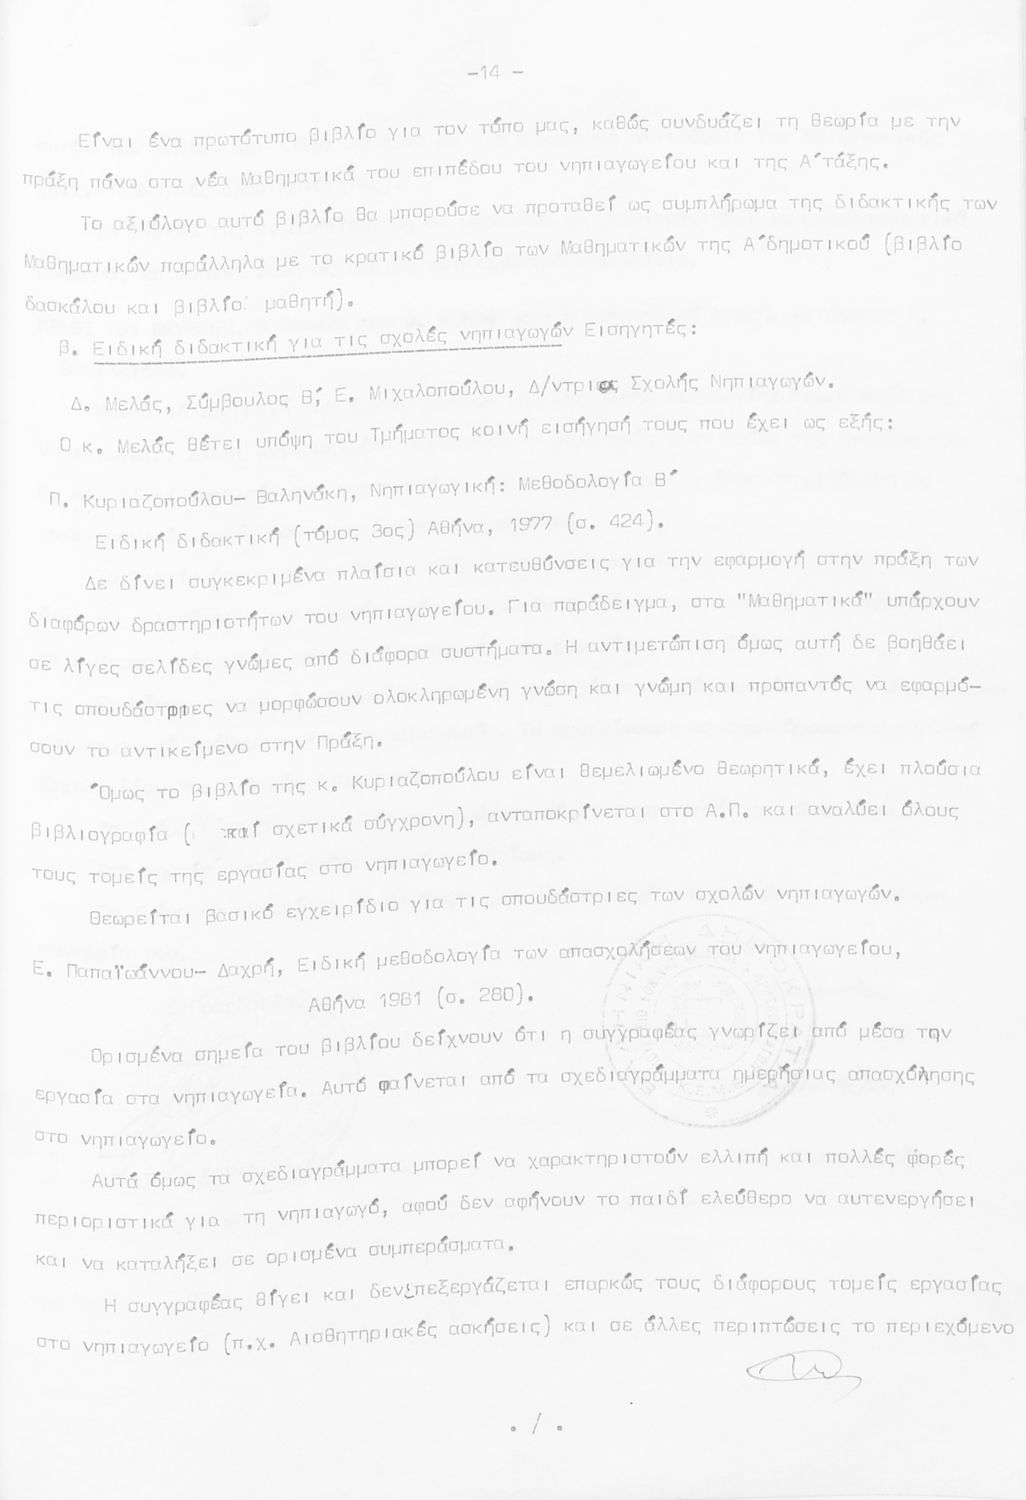 -14 -
Είναι ένα πρωτότυπο βιβλίο για τον τόπο μας, καθώς συνδυάζει τη θεωρία με την
πράξη πάνω στα νέα Μαθηματικά του επιπέδου του νηπιαγωγείου και της Α΄τάξης.
Το αξιόλογο αυτό βιβλίο θα μπορούσε να προταθεί ως συμπλήρωμα της διδακτικής των
Μαθηματικών παράλληλα με το κρατικό βιβλίο των Μαθηματικών της Α΄δημοτικού (βιβλίο
δασκάλου και βιβλίο μαθητή).
β. Ειδική διδακτική για τις σχολές νηπιαγωγών Εισηγητές:
Δ. Μελάς, Σύμβουλος Β΄, Ε. Μιχαλοπούλου, Δ/ντρια Σχολής Νηπιαγωγών.
Ο κ. Μελάς θέτει υπόψη του Τμήματος κοινή εισήγησή τους που έχει ως εξής:
Π. Κυριαζοπούλου- Βαληνάκη, Νηπιαγωγική: Μεθοδολογία Β΄
Ειδική διδακτική (τόμος 3ος) Αθήνα, 1977 (σ. 424).
Δε δίνει συγκεκριμένα πλαίσια και κατευθύνσεις για την εφαρμογή στην πράξη των
διαφόρων δραστηριοτήτων του νηπιαγωγείου. Για παράδειγμα, στα "Μαθηματικά" υπάρχουν
σε λίγες σελίδες γνώμες από διάφορα συστήματα. Η αντιμετώπιση όμως αυτή δε βοηθάει
τις σπουδάστριες να μορφώσουν ολοκληρωμένη γνώση και γνώμη και προπαντός να εφαρμό-
σουν το αντικείμενο στην Πράξη.
Όμως το βιβλίο της κ. Κυριαζοπούλου είναι θεμελιωμένο θεωρητικά, έχει πλούσια
βιβλιογραφία ( και σχετικά σύγχρονη), ανταποκρίνεται στο Α.Π. και αναλύει όλους
τους τομείς της εργασίας στο νηπιαγωγείο.
Θεωρείται βασικό εγχειρίδιο για τις σπουδάστριες των σχολών νηπιαγωγών.
Ε. Παπαϊωάννου- Δαχρή, Ειδική μεθοδολογία των απασχολήσεων του νηπιαγωγείου,
Αθήνα 1981 (σ. 280).
Ορισμένα σημεία του βιβλίου δείχνουν ότι η συγγραφέας γνωρίζει από μέσα την
εργασία στα νηπιαγωγεία. Αυτό φαίνεται από τα σχεδιαγράμματα ημερήσιας απασχόλησης
στο νηπιαγωγείο.
Αυτά όμως τα σχεδιαγράμματα μπορεί να χαρακτηριστούν ελλιπή και πολλές φορές
περιοριστικά για τη νηπιαγωγό, αφού δεν αφήνουν το παιδί ελεύθερο να αυτενεργήσει
και να καταλήξει σε ορισμένα συμπεράσματα.
Η συγγραφέας θίγει και δεν επεξεργάζεται επαρκώς τους διάφορους τομείς εργασίας
στο νηπιαγωγείο (π.χ. Αισθητηριακές ασκήσεις) και σε άλλες περιπτώσεις το περιεχόμενο
. / .